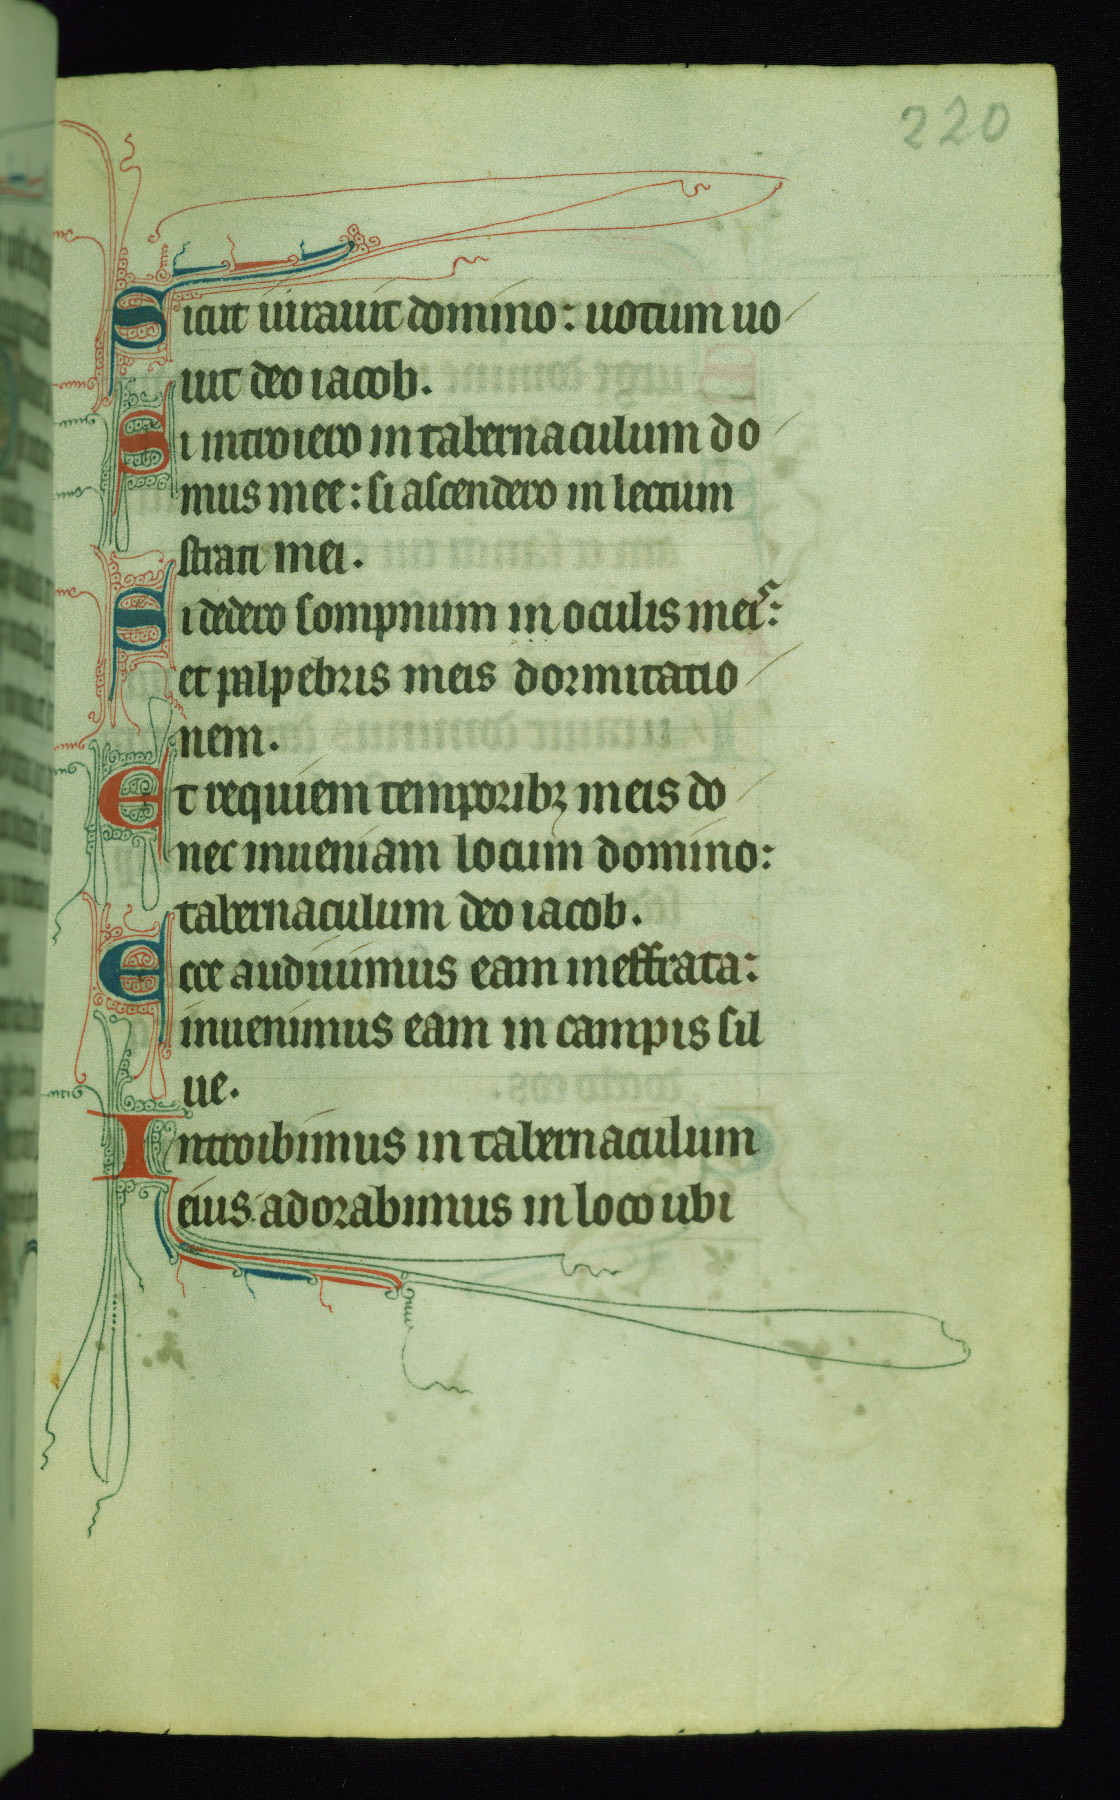 220
Sicut iurauit domino: uotum uo
uit deo iacob.
Si introiero in tabernaculum do
mus mee: si ascendero in lectum
strati mei.
Si dedero sompnum in oculis meis:
et palpebris meis dormitatio
nem.
Et requiem temporibꝫ meis do
nec inueniam locum domino:
tabernaculum deo iacob.
Ecce audiuimus eam in effrata:
inuenimus eam in campis sil
ue.
Introibimus in tabernaculum
eius: adorabimus in loco ubi